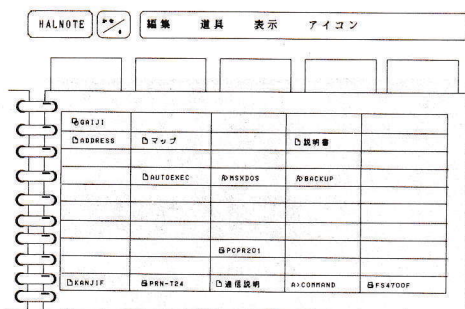 HALNOTE 編集 道具 表示 アイコン
GAIJI
ADDRESS マップ 説明書
AUTOEXEC MSXDOS BACKUP
PCPR201
KANJIF PRN-T24 通信説明 A>COMMAND FS4700F